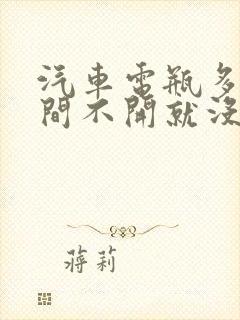 汽車電瓶多
間不開就沒
蔣莉